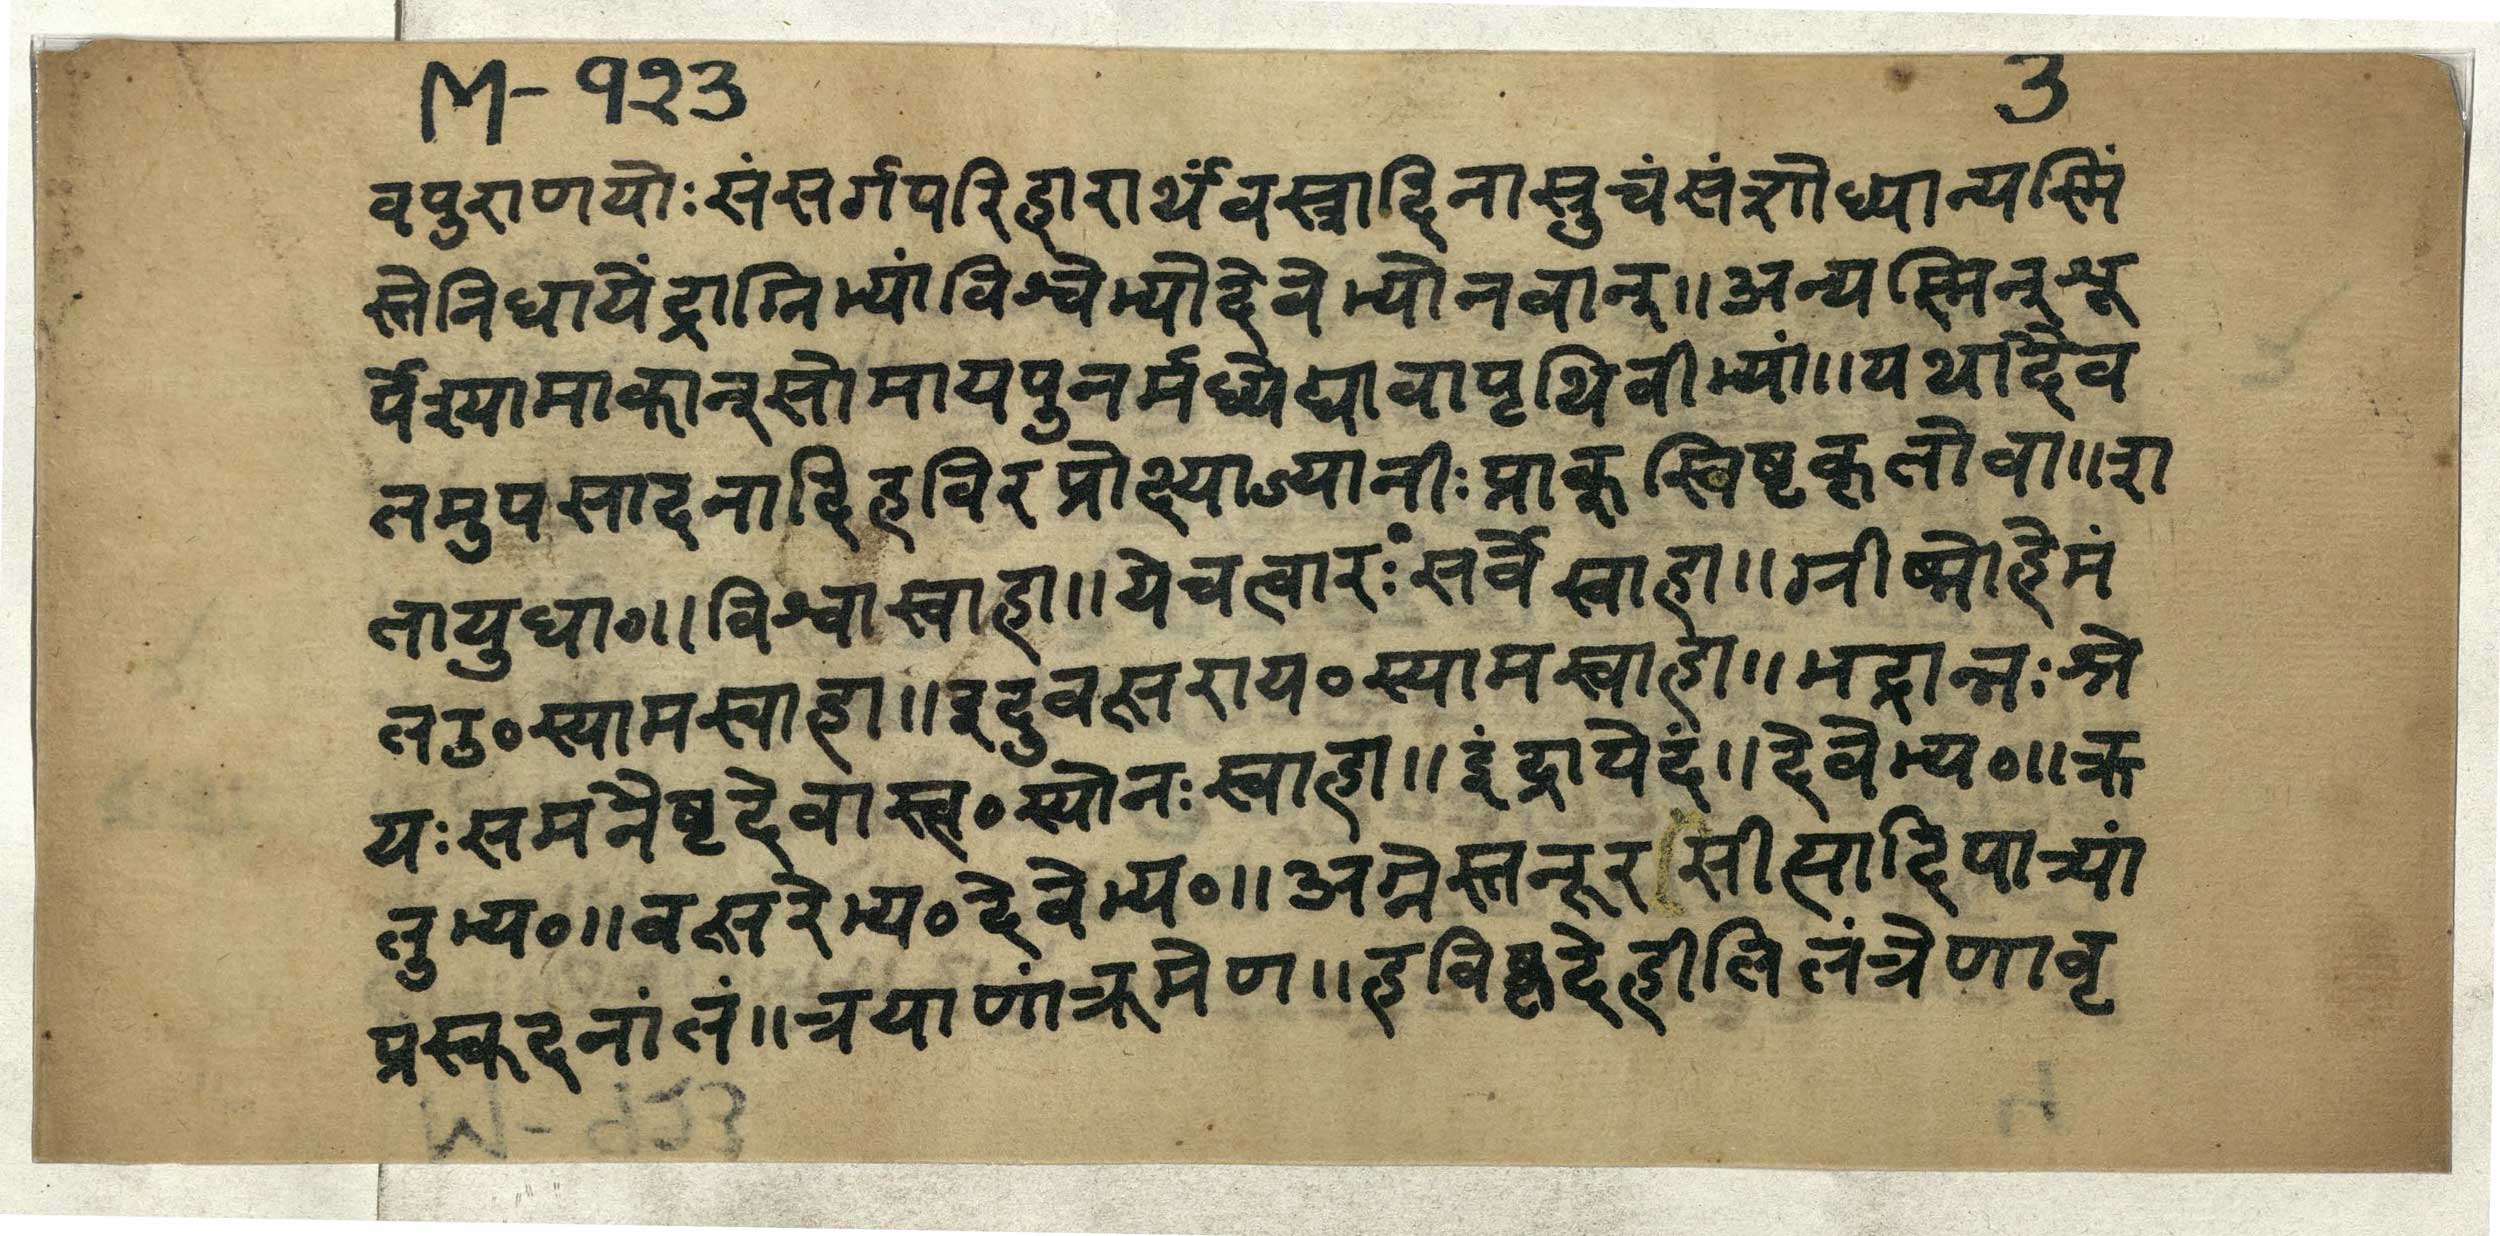 M-१२३ ३
वपुराणयोः संसर्गपरिहारार्थं वस्त्रादिना स्रुचं संशोध्यान्यस्मिं
स्तेनिधायेंद्राग्निभ्यां विश्वेभ्यो देवेभ्यो नवान् ॥ अन्यस्मिन् शू
र्पे श्यामाकान् सोमाय पुनर्मध्ये द्यावापृथिवीभ्यां ॥ यथादैव
तमुपसादनादि हविरप्रोक्ष्याज्यानीः प्राक् स्विष्टकृतो वा ॥ श
तायुधा० ॥ विश्वा स्वाहा ॥ ये चत्वारः सर्वे स्वाहा ॥ ग्रीष्मो हेमं
तउ० स्याम स्वाहा ॥ इदुवत्सराय० स्याम स्वाहा ॥ भद्रान्नः श्रे
यः समनैष्ट देवास्त्व० स्योनः स्वाहा ॥ इंद्रायेदं ॥ देवेभ्य० ॥ ऋ
तुभ्य० ॥ वत्सरेभ्य० देवेभ्य० ॥ अग्नेस्तनूरसीत्यादि पात्र्यां
प्रस्कदनांतं ॥ त्रयाणां क्रमेण ॥ हविष्कृदेहीति तंत्रेणावृ